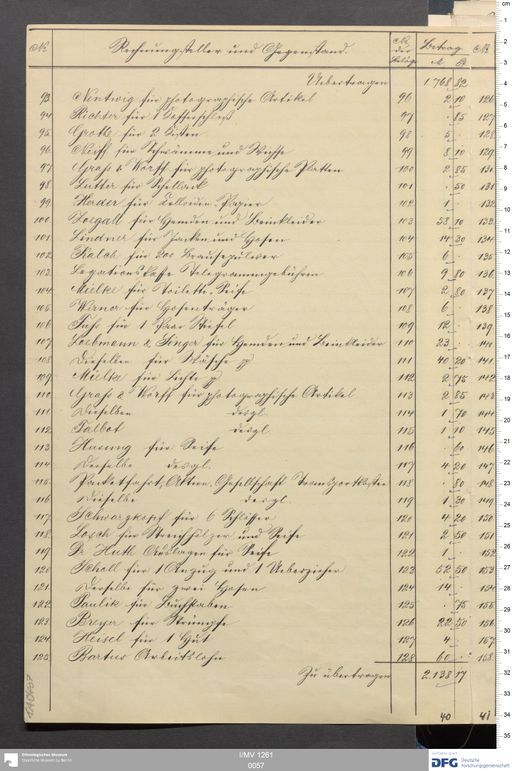 № Rechnungsteller und Gegenstand. № der Beläge Betrag M. Pf. №
Uebertragen 1.768 82
93 Nentwig für photographische Artikel 96 2 10 126
94 Richter für 1 97 . 85 127
95 Grothe für 2 98 5 . 128
96 für Schwämme und 99 8 10 129
97 Grass & Worff für photographische Platten 100 2 85 131
98 Lutter für Schellack 101 . 50 131
99 Herder für Celloidin-Papier 102 1 . 132
100 für Hemden und Beinkleider 103 58 10 132
101 Lindner für Jacken und Hosen 104 14 30 134
102 für 200 Brausepulver 105 6 . 135
103 Legations Casse Telegrammgebühren 106 9 80 136
104 Mielke für Toilette-Seife 107 2 80 137
105 Werner für Hosenträger 108 6 . 138
106 für 1 Paar Stiefel 109 12 . 139
107 & Singer für Hemden und Beinkleider 110 23 . 140
108 Dieselben für Wäsche pp 111 40 20 141
109 Mielke für Lichte pp 112 2 75 142
110 Grass & Worff für photographische Artikel 113 2 85 143
111 Dieselben desgl. 114 1 70 144
112 Talbot desgl. 115 1 10 145
113 Husung für Seife 116 . 60 146
114 Derselbe desgl. 117 4 20 147
115 Packetfahrt-Aktien-Gesellschaft Transportkosten 118 . 80 148
116 Dieselbe desgl. 119 1 30 149
117 Schwarzkopf für 6 Schlösser 120 4 20 150
118 für Streichhölzer und Seife 121 2 50 151
119 Dr. Huth Auslagen für Seife 122 1 . 152
120 Scholl für 1 Anzug und 1 Ueberzieher 123 52 50 153
121 Derselbe für zwei Hosen 124 14 . 154
122 Paulik für Buchstaben 125 . 75 155
123 Breyer für Strümpfe 126 22 50 156
124 Heisel für 1 Hut 127 4 . 157
125 Bartus Arbeitslohn 128 60 . 158
Zu übertragen 2.138 17
40 41
Ethnologisches Museum
Staatliche Museen zu Berlin
I/MV 1261
0057
gefördert durch
DFG Deutsche Forschungsgemeinschaft